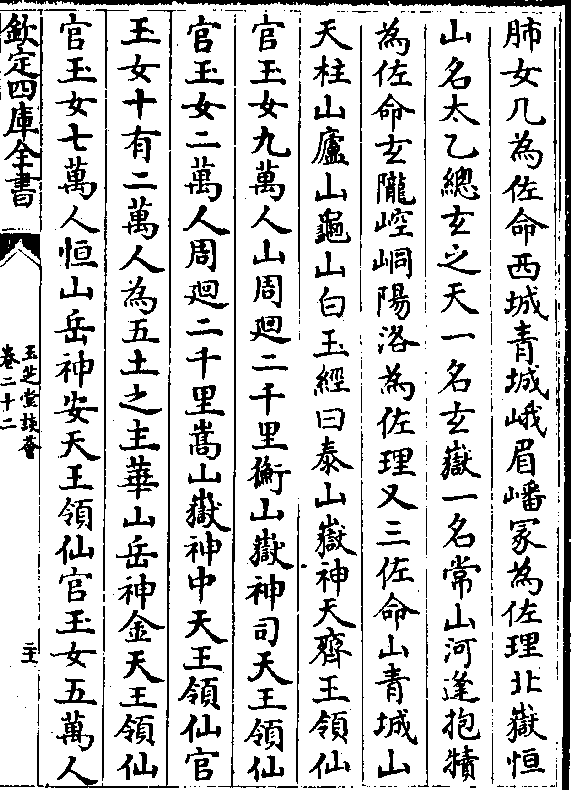 肺女几為佐命西城青城峨眉嶓冢為佐理北嶽恒
山名太乙總玄之天一名玄嶽一名常山河逢抱犢
為佐命玄隴崆峒陽洛為佐理又三佐命山青城山
天柱山廬山龜山白玉經曰泰山嶽神天齊王領仙
官玉女九萬人山周廻二千里衡山嶽神司天王領仙
官玉女二萬人周廻二千里嵩山嶽神中天王領仙官
玉女十有二萬人為五土之主華山岳神金天王領仙
官玉女七萬人恒山岳神安天王領仙官玉女五萬人
欽定四庫全書
玉芝堂談薈
卷二十二